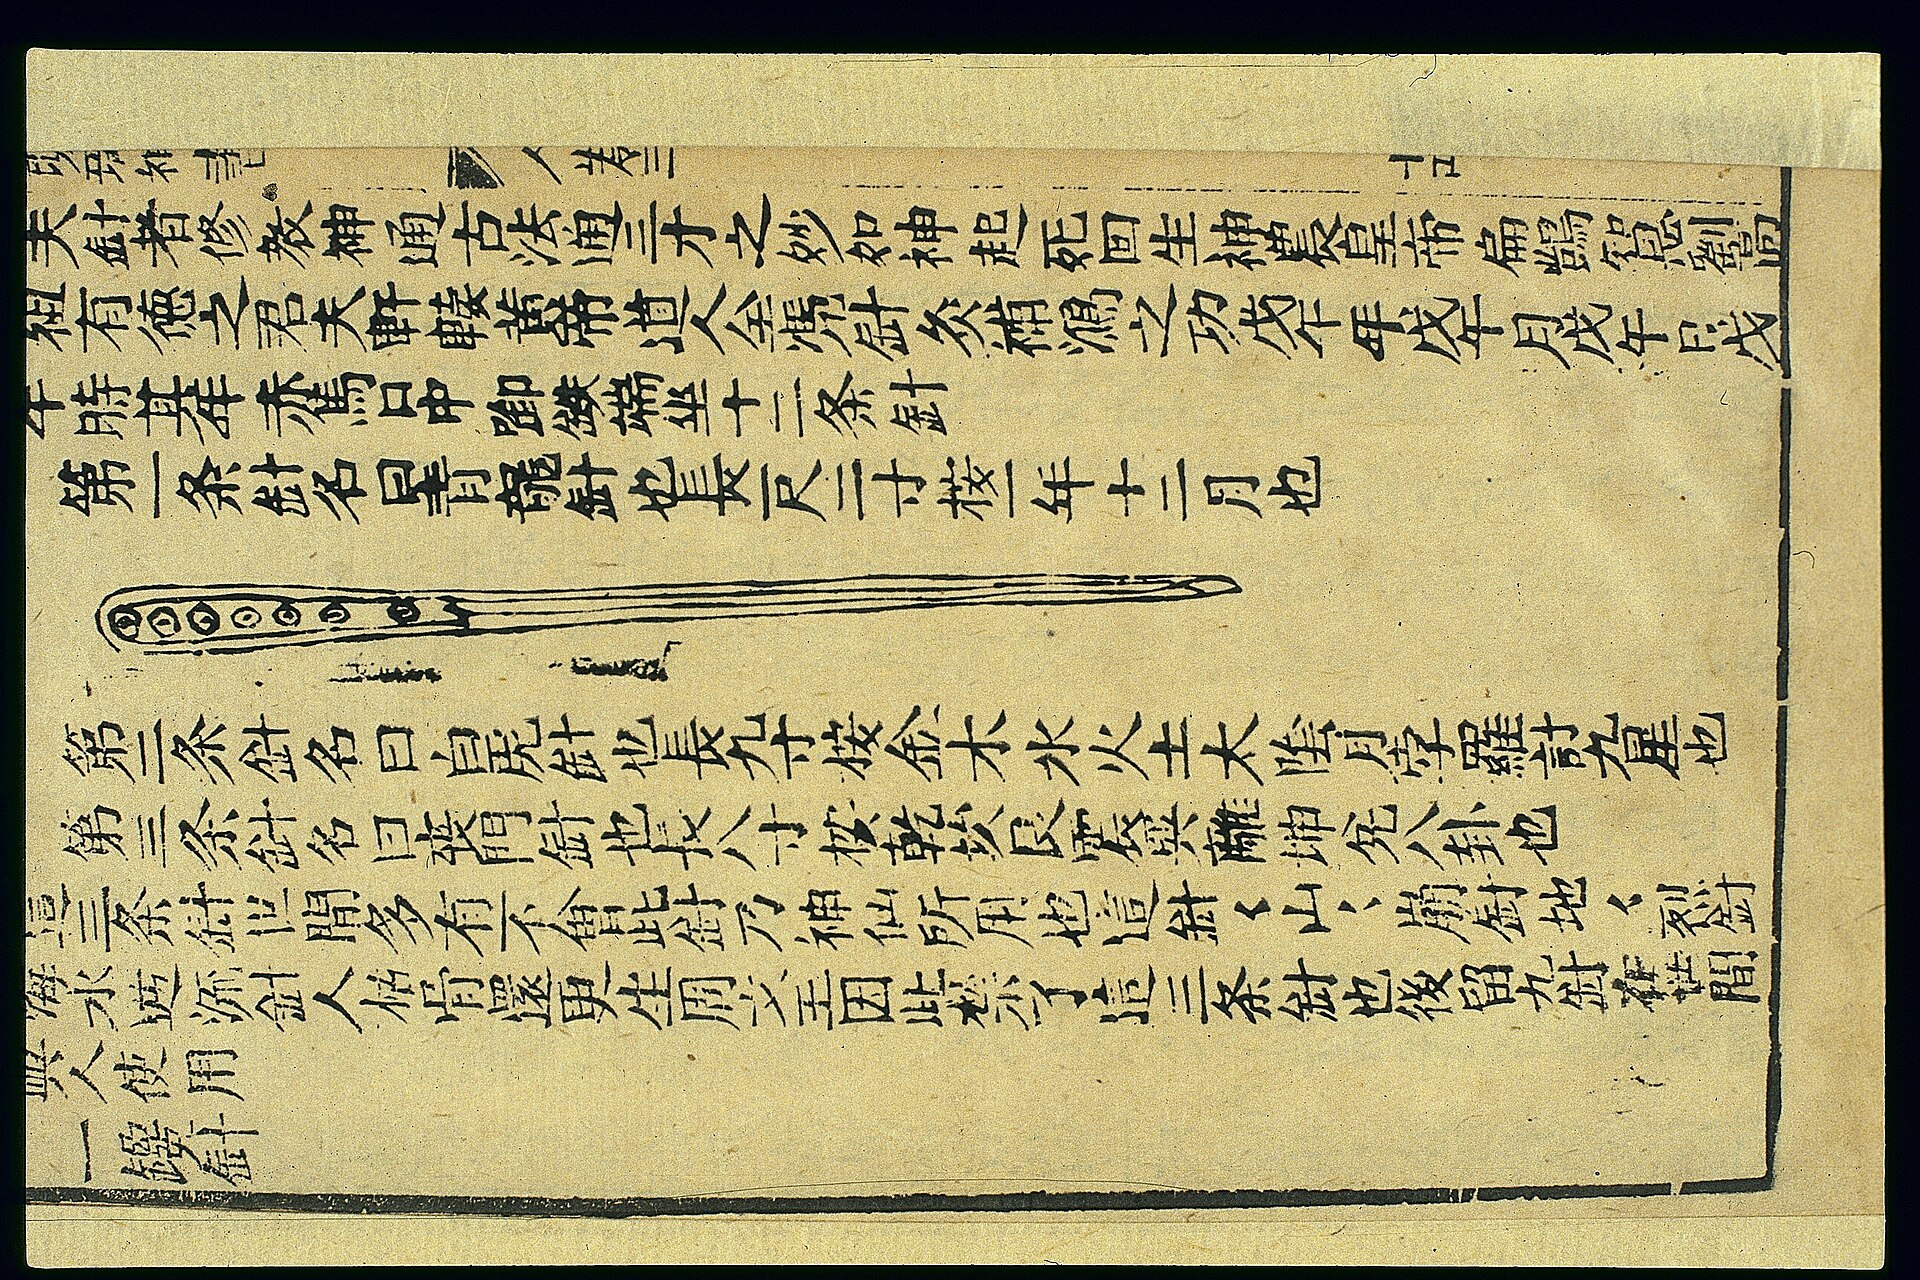 夫針者修教神通古法通三才之妙如神起死回生神農皇帝扁鵲劉高
祖有德之君夫軒轅黃帝道人全馮針灸補瀉之功戊午年戊午月戊午日戊
午時其年赤馬口中啣鉄坐十二条針
第一条針名曰青龍針也長一尺二寸按一年十二月也
第二条針名曰白虎針也長九寸按金木水火土太陰月孛羅計九星也
第三条針名曰喪門針也長八寸按乾坎艮震巽離坤兌八卦也
這三条針世間多有不會此針乃神仙所用也這針〻山〻崩針地〻列針
海水逆流針人枯骨還更生周文王因此禁了這三条針也後留九針在世間
與人使用
一針